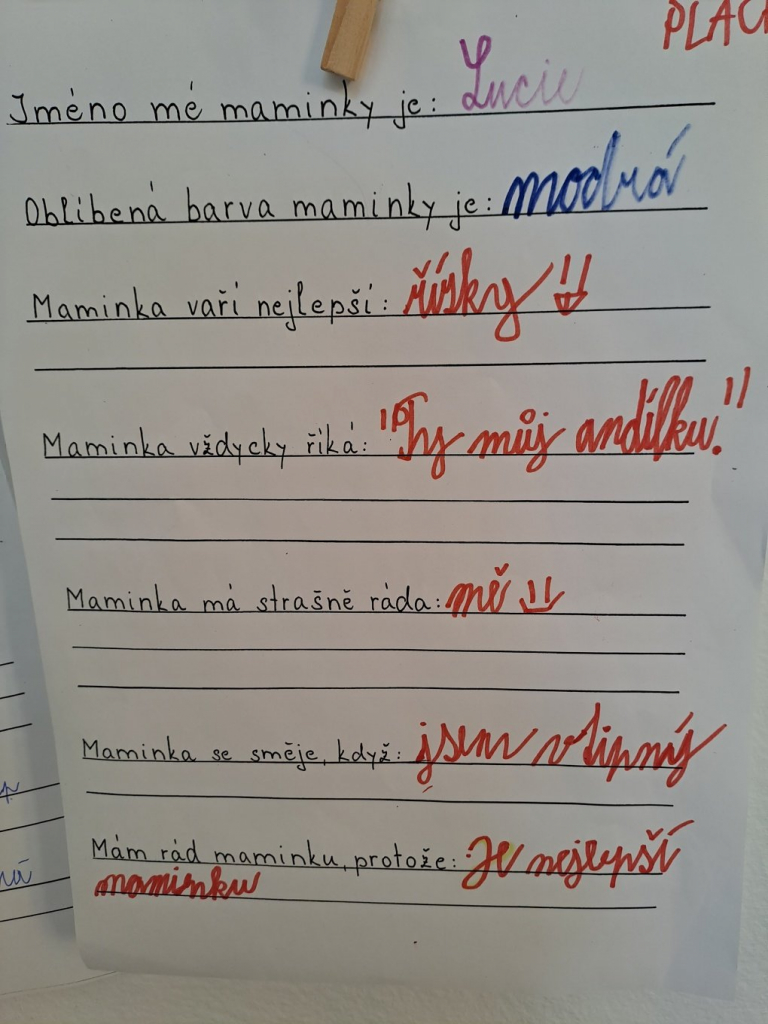 PLAC
Jméno mé maminky je: Lucie
Oblíbená barva maminky je: modrá
Maminka vaří nejlepší: řísky
Maminka vždycky říká: "Ty můj andílku."
Maminka má strašně ráda: mě
Maminka se směje, když: jsem vtipný
Mám rád maminku, protože: Je nejlepší
maminku